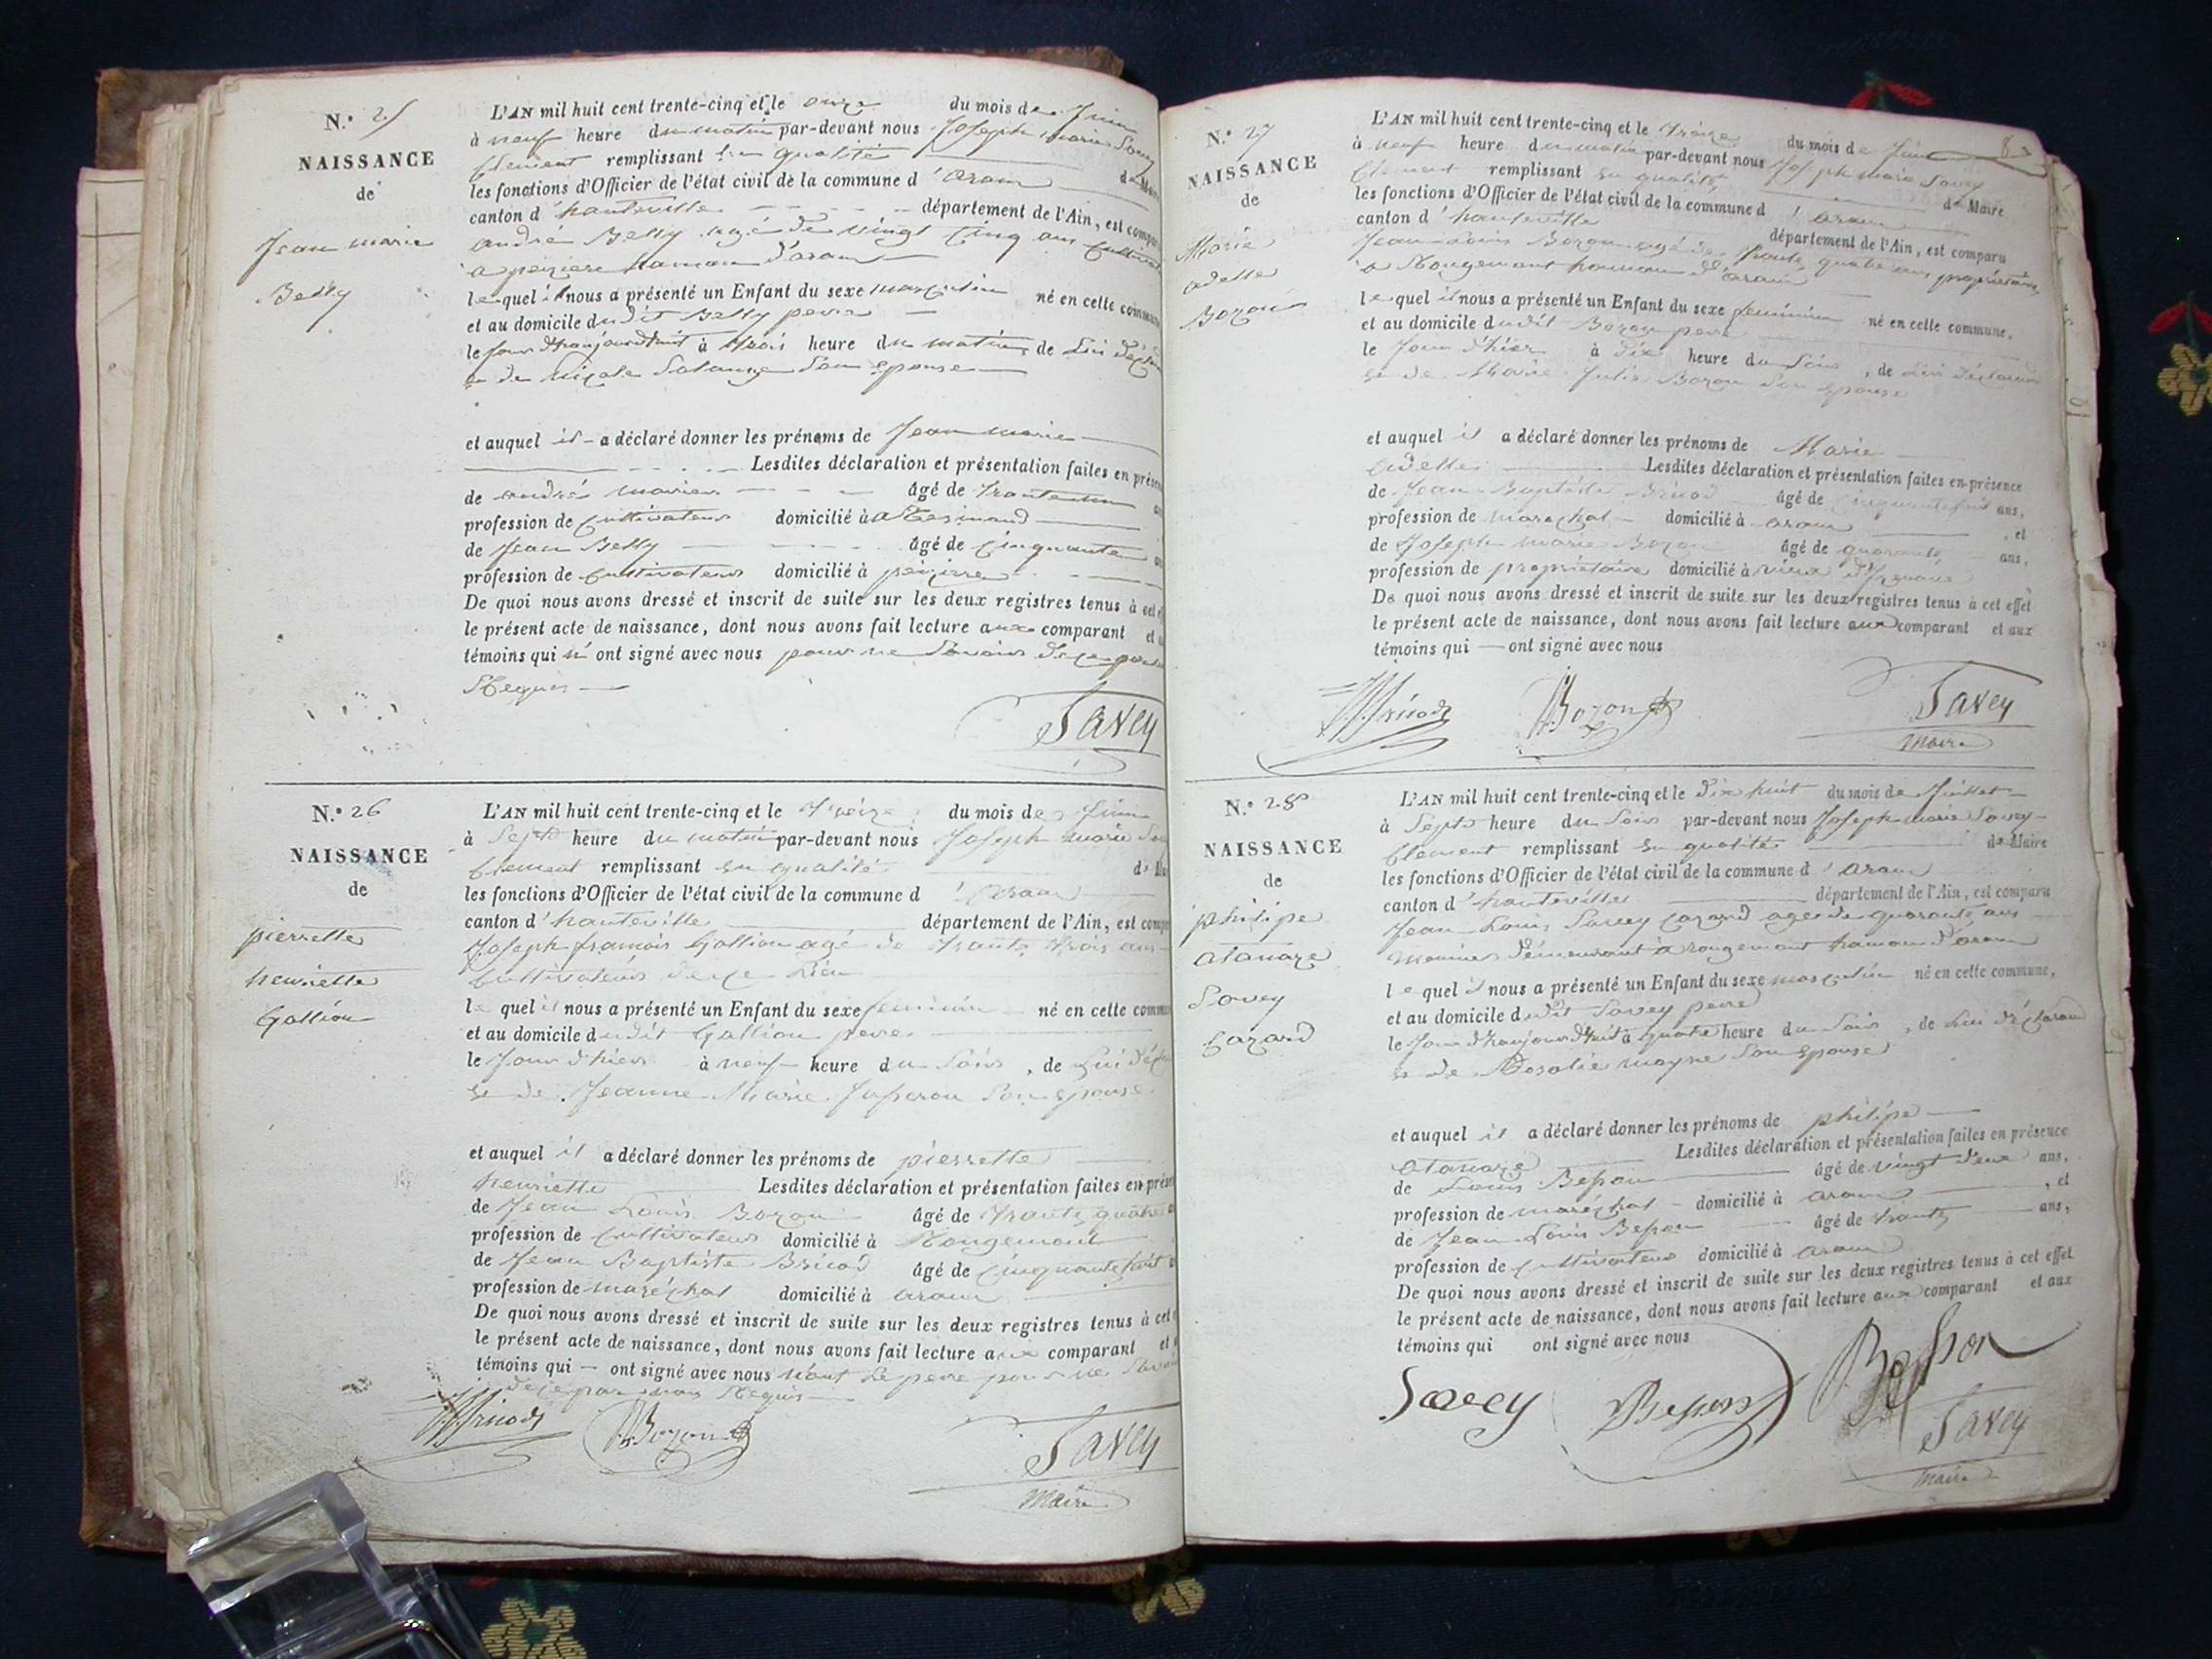 N.º 25
NAISSANCE
de
Jean marie
Belly
L'AN mil huit cent trente-cinq et le onze du mois de Juin
à neuf heure du matin par-devant nous Joseph marie Savey
Clement remplissant en qualité de Maire
les fonctions d'Officier de l'état civil de la commune d'aran
canton d'hauteville département de l'Ain, est compa
andré Belly agé de vingt Cinq ans Cultivat
a peiziere hamau d'aran
lequel il nous a présenté un Enfant du sexe masculin né en cette commune
et au domicile dudit Belly pere
le Jour d'haujourdhuit à trois heure du matin de Lui déclar
et de Son epouse
et auquel il a déclaré donner les prénoms de Jean marie
Lesdites déclaration et présentation faites en présen
de andré âgé de trante
profession de Cultivateur domicilié à
de Jean Belly âgé de Cinquante
profession de Cultivateur domicilié à
De quoi nous avons dressé et inscrit de suite sur les deux registres tenus à cet
le présent acte de naissance, dont nous avons fait lecture aux comparant et
témoins qui n'ont signé avec nous pour ne Savoir de ce
Requis
Savey
N.º 26
NAISSANCE
de
pierrette
henriette
Gallion
L'AN mil huit cent trente-cinq et le treize du mois de Juin
à Sept heure du matin par-devant nous Joseph marie Sav
Clement remplissant en qualité de
les fonctions d'Officier de l'état civil de la commune d'aran
canton d'hauteville département de l'Ain, est comp
Joseph francois Gallion agé de trante trois ans
Cultivateur de ce Lieu
lequel il nous a présenté un Enfant du sexe feminin né en cette comm
et au domicile dudit Gallion pere
le Jour d'hier à neuf heure du Soir, de Lui décl
et de Jeanne Marie Son epouse
et auquel il a déclaré donner les prénoms de pierrette
henriette Lesdites déclaration et présentation faites en prése
de Jean Louis Bozon âgé de trante quatre
profession de Cultivateur domicilié à Rougemont
de Jean Baptiste Bricod âgé de Cinquante huit
profession de maréchal domicilié à aran
De quoi nous avons dressé et inscrit de suite sur les deux registres tenus à cet
le présent acte de naissance, dont nous avons fait lecture aux comparant et
témoins qui — ont signé avec nous non le pere pour ne Savoir
de ce par nous Requis
Bricod Bozon Savey
Maire
N.º 27
NAISSANCE
de
Marie
adelle
Bozon
L'AN mil huit cent trente-cinq et le treize du mois de Juin
à neuf heure du matin par-devant nous Joseph marie Savey
Clement remplissant en qualité de Maire
les fonctions d'Officier de l'état civil de la commune d'aran
canton d'hauteville département de l'Ain, est comparu
Jean Louis Bozon agé de trante quatre ans propriétaire
a Rougemont hamau d'aran
lequel il nous a présenté un Enfant du sexe feminin né en cette commune,
et au domicile dudit Bozon pere
le Jour d'hier à dix heure du Soir, de Lui déclarant
et de Marie Julie Bozon Son epouse
et auquel il a déclaré donner les prénoms de Marie
adelle Lesdites déclaration et présentation faites en présence
de Jean Baptiste Bricod âgé de Cinquante huit ans,
profession de marechal domicilié à aran, et
de Joseph marie Bozon âgé de quarante ans,
profession de proprietaire domicilié à vieux d'Izenave
De quoi nous avons dressé et inscrit de suite sur les deux registres tenus à cet effet
le présent acte de naissance, dont nous avons fait lecture aux comparant et aux
témoins qui — ont signé avec nous
Bricod Bozon Savey
Maire
N.º 28
NAISSANCE
de
philipe
atanaze
Savey
Cazard
L'AN mil huit cent trente-cinq et le dix huit du mois de Juillet
à Sept heure du Soir par-devant nous Joseph marie Savey
Clement remplissant en qualité de Maire
les fonctions d'Officier de l'état civil de la commune d'aran
canton d'hauteville département de l'Ain, est comparu
Jean Louis Savey Cazard age de quarante ans
demeurant à rougemont hamau d'aran
lequel il nous a présenté un Enfant du sexe masculin né en cette commune,
et au domicile dudit Savey pere
le Jour d'haujourdhuit à quatre heure du Soir, de Lui déclarant
et de Rosalie moyne Son epouse
et auquel il a déclaré donner les prénoms de philipe
atanaze Lesdites déclaration et présentation faites en présence
de Louis Besson âgé de vingt deux ans,
profession de maréchal domicilié à aran, et
de Jean Louis Besson âgé de trante ans,
profession de Cultivateur domicilié à aran
De quoi nous avons dressé et inscrit de suite sur les deux registres tenus à cet effet
le présent acte de naissance, dont nous avons fait lecture aux comparant et aux
témoins qui ont signé avec nous
Savey Besson Besson
Savey
Maire